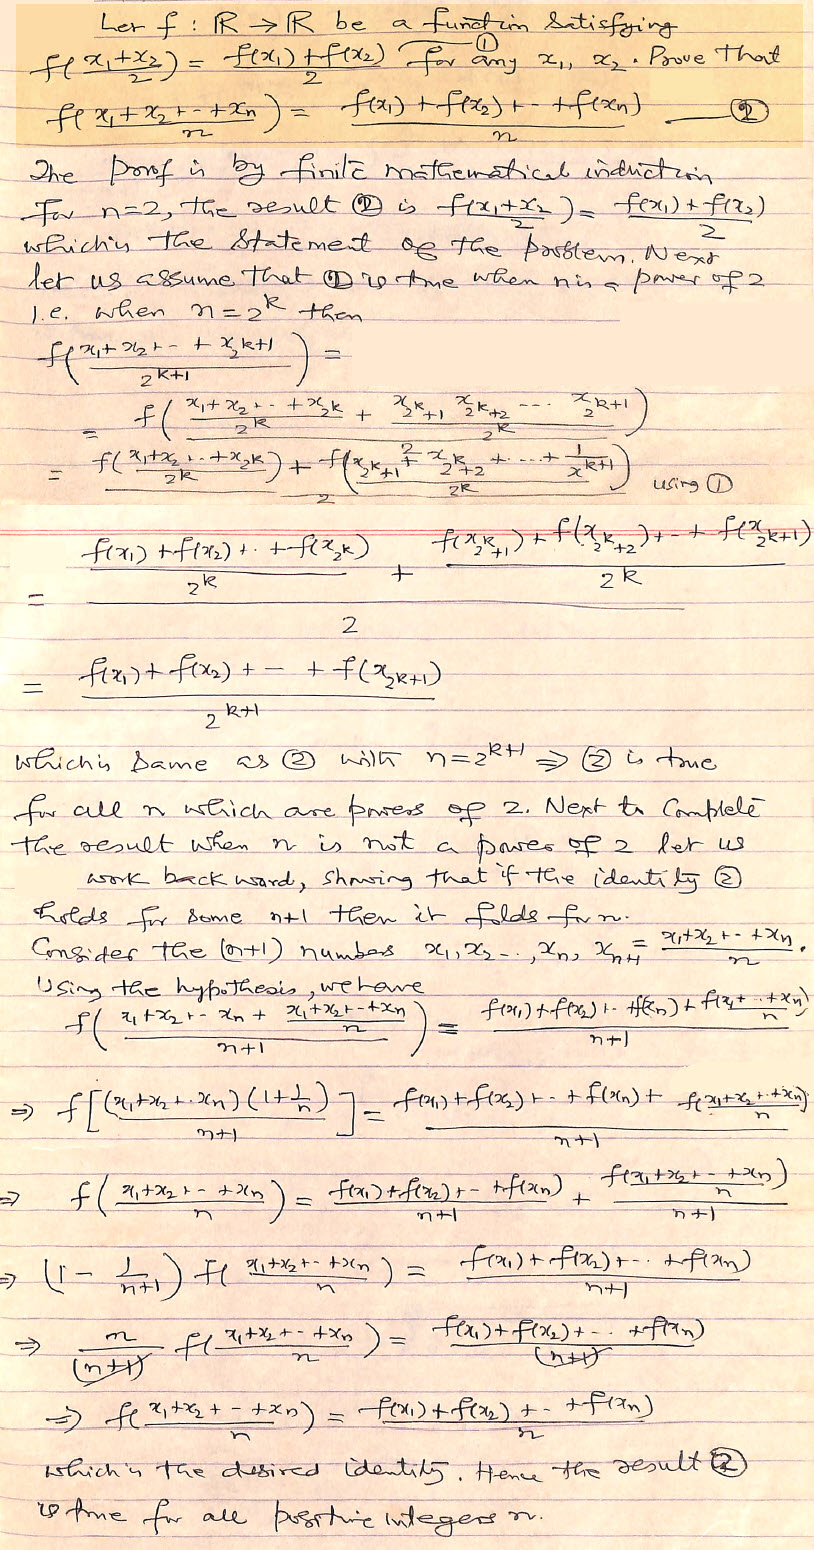 Let f : ℝ → ℝ be a function satisfying
f((x₁+x₂)/2) = (f(x₁)+f(x₂))/2 —① for any x₁, x₂. Prove that
f((x₁+x₂+--+xₙ)/n) = (f(x₁)+f(x₂)+--+f(xₙ))/n —②
The proof is by finite mathematical induction
For n=2, the result ② is f((x₁+x₂)/2) = (f(x₁)+f(x₂))/2
which is the statement of the problem. Next
let us assume that ② is true when n is a power of 2
i.e. when n=2^k then
f((x₁+x₂+--+x_{2^{k+1}})/2^{k+1}) =
= f(((x₁+x₂+--+x_{2^k})/2^k + (x_{2^k+1} x_{2^k+2} --- x_{2^{k+1}})/2^k)/2)
= (f((x₁+x₂+..+x_{2^k})/2^k) + f((x_{2^k+1}+x_{2^k+2}+...+1/x^{k+1})/2^k))/2 using ①
= ((f(x₁)+f(x₂)+..+f(x_{2^k}))/2^k + (f(x_{2^k+1})+f(x_{2^k+2})+--+f(x_{2^{k+1}}))/2^k)/2
= (f(x₁)+f(x₂)+--+f(x_{2^{k+1}}))/2^{k+1}
which is same as ② with n=2^{k+1} ⇒ ② is true
for all n which are powers of 2. Next to complete
the result when n is not a power of 2 let us
work backward, showing that if the identity ②
holds for some n+1 then it folds for n.
Consider the (n+1) numbers x₁, x₂--, xₙ, xₙ₊₁ = (x₁+x₂+--+xₙ)/n.
Using the hypothesis, we have
f((x₁+x₂+--xₙ+(x₁+x₂+--+xₙ)/n)/(n+1)) = (f(x₁)+f(x₂)+--f(xₙ)+f((x₁+..+xₙ)/n))/(n+1)
⇒ f[((x₁+x₂+..xₙ)(1+1/n))/(n+1)] = (f(x₁)+f(x₂)+--+f(xₙ)+f((x₁+x₂+..+xₙ)/n))/(n+1)
⇒ f((x₁+x₂+--+xₙ)/n) = (f(x₁)+f(x₂)+--+f(xₙ))/(n+1) + f((x₁+x₂+--+xₙ)/n)/(n+1)
⇒ (1 - 1/(n+1)) f((x₁+x₂+--+xₙ)/n) = (f(x₁)+f(x₂)+--.+f(xₙ))/(n+1)
⇒ n/(n+1) f((x₁+x₂+--+xₙ)/n) = (f(x₁)+f(x₂)+--.+f(xₙ))/(n+1)
⇒ f((x₁+x₂+--+xₙ)/n) = (f(x₁)+f(x₂)+--+f(xₙ))/n
which is the desired identity. Hence the result ②
is true for all positive integers n.